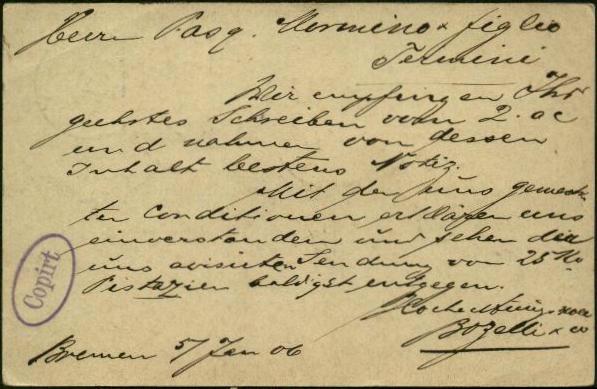 Herrn Pasq. Mormino & figlio
Termini
Wir empfingen Ihr
geehrtes Schreiben vom 2. ac
und nahmen von dessen
Inhalt bestens Notiz.
Mit den uns gemach-
ten Conditionen erklären uns
einverstanden und sehen der
uns avisirten Sendung von 25 Ko
Pistazien baldigst entgegen.
Hochachtungsvoll
Bozelli & co
Bremen 5/Jan 06
Copirt